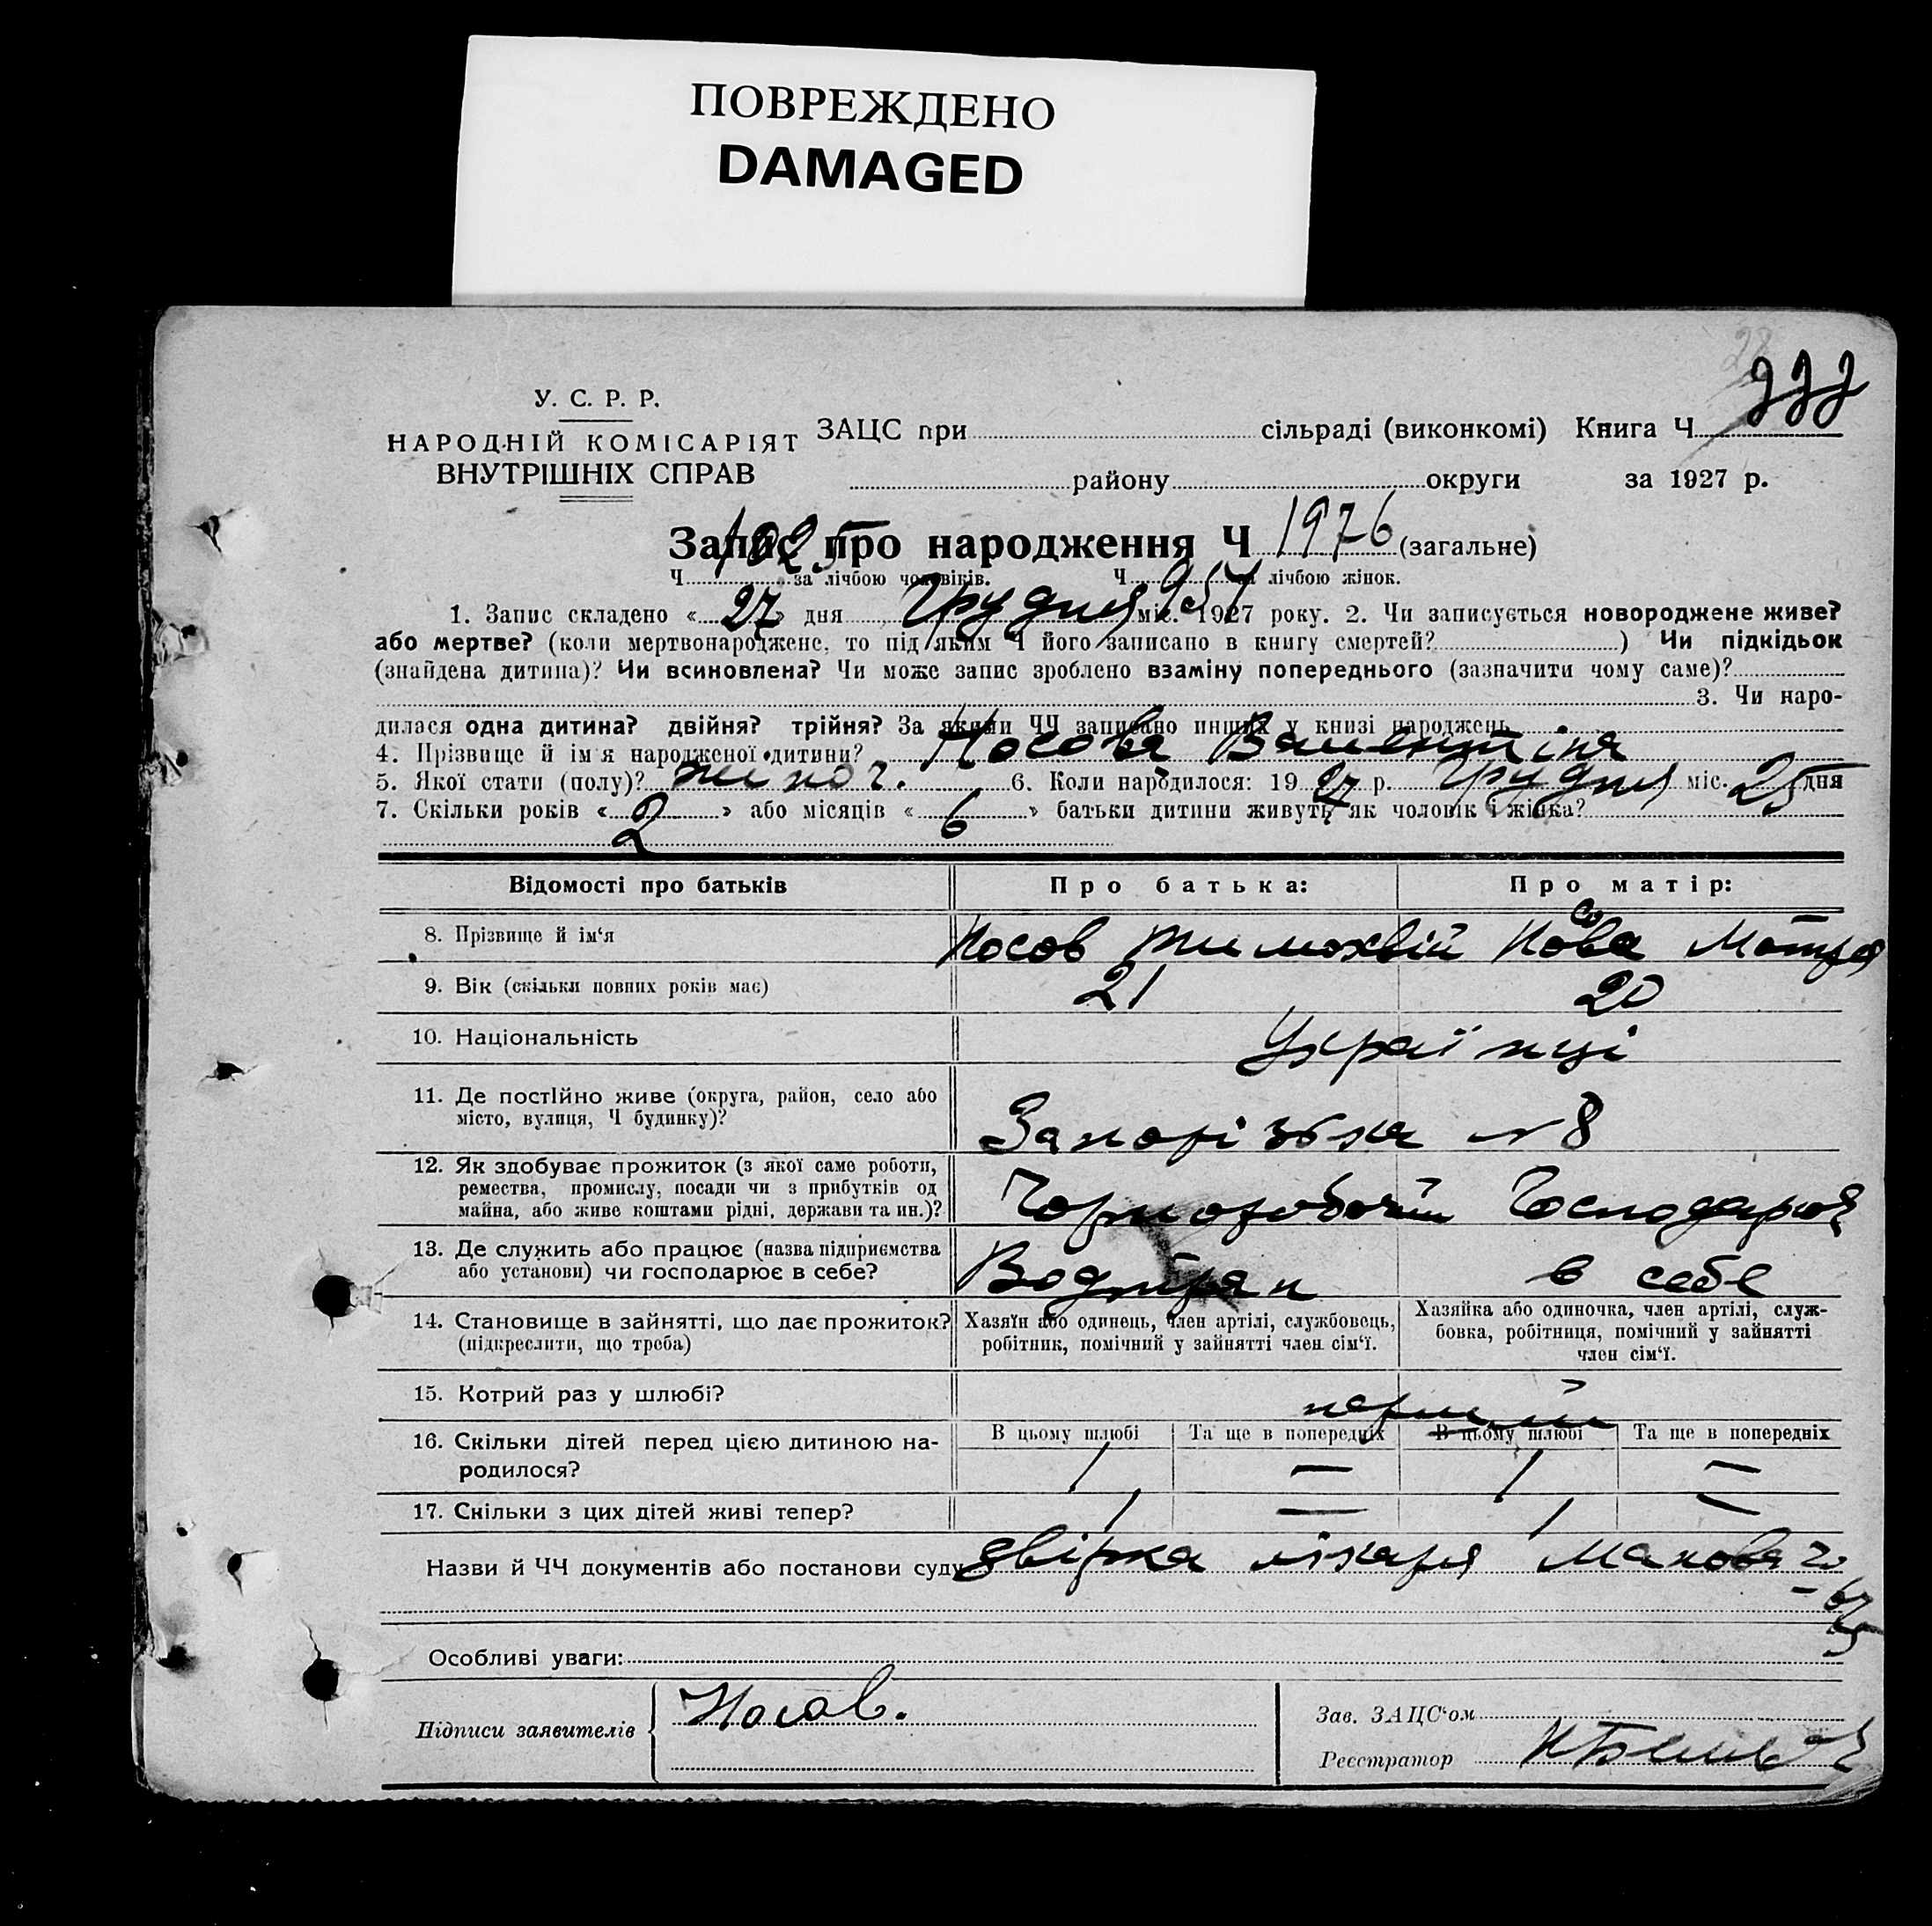 ПОВРЕЖДЕНО
DAMAGED
У. С. Р. Р.
НАРОДНІЙ КОМІСАРІЯТ
ВНУТРІШНІХ СПРАВ
ЗАЦС при сільраді (виконкомі) Книга Ч
району округи за 1927 р.
Запис про народження Ч 1976 (загальне)
Ч 1025 за лічбою чоловіків. Ч 951 за лічбою жінок.
1. Запис складено « 27 » дня Грудня міс. 1927 року. 2. Чи записується новороджене живе?
або мертве? (коли мертвонароджене, то під яким Ч його записано в книгу смертей? ) Чи підкідьок
(знайдена дитина)? Чи всиновлена? Чи може запис зроблено взаміну попереднього (зазначити чому саме)?
3. Чи наро-
дилася одна дитина? двійня? трійня? За якими ЧЧ записано инших у книзі народжень
4. Прізвище й ім'я народженої дитини? Носова Валентіна
5. Якої стати (полу)? жіноч. 6. Коли народилося: 19 27 р. Грудня міс. 25 дня
7. Скільки років « 2 » або місяців « 6 » батьки дитини живуть як чоловік і жінка?
Відомості про батьків Про батька: Про матір:
8. Прізвище й ім'я Носов Тимохвій Носова Мотря
9. Вік (скільки повних років має) 21 20
10. Національність Українці
11. Де постійно живе (округа, район, село або
місто, вулиця, Ч будинку)? Запорізька № 8
12. Як здобуває прожиток (з якої саме роботи,
ремества, промислу, посади чи з прибутків од
майна, або живе коштами рідні, держави та ин.)? Чорноробочий Господарює
13. Де служить або працює (назва підприємства
або установи) чи господарює в себе? Водтран в себе
14. Становище в зайнятті, що дає прожиток?
(підкреслити, що треба)
Хазяїн або одинець, член артілі, службовець,
робітник, помічний у зайнятті член сім'ї.
Хазяйка або одиночка, член артілі, служ-
бовка, робітниця, помічний у зайнятті
член сім'ї.
15. Котрий раз у шлюбі? перший
16. Скільки дітей перед цією дитиною на-
родилося?
В цьому шлюбі Та ще в попередніх В цьому шлюбі Та ще в попередніх
1 — 1 —
17. Скільки з цих дітей живі тепер? 1 — 1 —
Назви й ЧЧ документів або постанови суду довірка лікаря
Особливі уваги:
Підписи заявителів Носов.
Зав. ЗАЦС'ом
Реєстратор